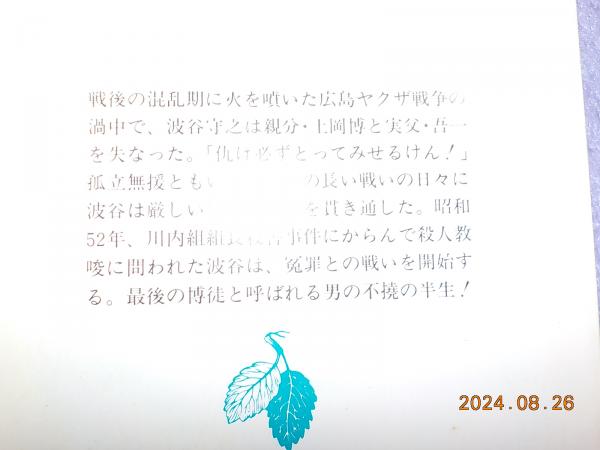 戦後の混乱期に火を噴いた広島ヤクザ戦争の
渦中で、波谷守之は親分・土岡博と実父・吾一
を失なった。「仇は必ずとってみせるけん!」
孤立無援ともい の長い戦いの日々に
波谷は厳しい を貫き通した。昭和
52年、川内組組長 事件にからんで殺人教
唆に問われた波谷は、冤罪との戦いを開始す
る。最後の博徒と呼ばれる男の不撓の半生!
2024.08.26